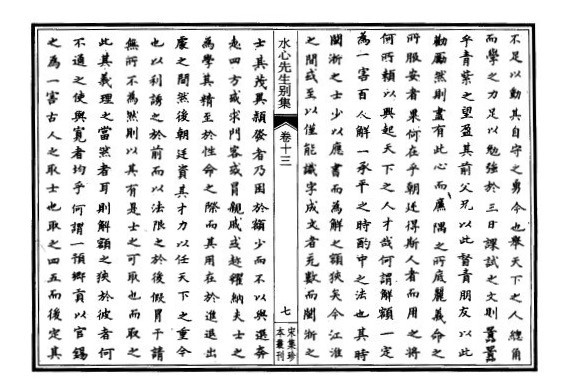 不足以動其自守之勇今也舉天下之人總角
而學之力足以勉強於三日課試之文則囂囂
乎青紫之望盈其前父兄以此督責朋友以此
勸勵然則盡有此心而廉隅之所底麗義命之
所服安者果何在乎朝廷得斯人者而用之將
何所賴以興起天下之人才哉何謂解額一定
為一害百人解一承平之時酌中之法也其時
閩浙之士少以應書而為解之額狹矣今江淮
之間或至以僅能識字成文者充數而閩浙之
水心先生别集
卷十三
七
宋集珍
本叢刊
士其茂異穎發者乃困於額少而不以與選奔
走四方或求門客或冒親戚或趂糴納夫士之
為學其精至於性命之際而其用在於進退出
處之間然後朝廷資其才力以任天下之重今
也以利誘之於前而以法限之於後假冒干請
無所不為然則以其有是士之可取也而取之
此其義理之當然者耳則解額之狹於彼者何
不通之使與寛者均乎何謂一預鄉貢以官錫
之為一害古人之取士也取之四五而後定其